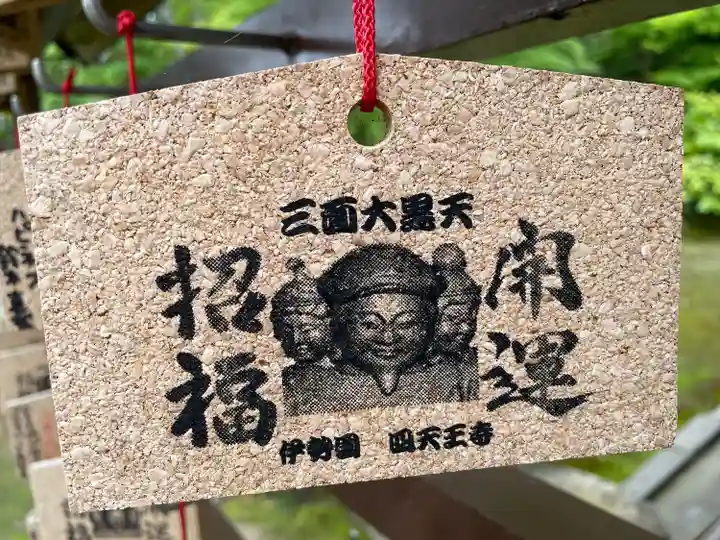 三面大黒天
開運
招福
伊勢國 四天王寺